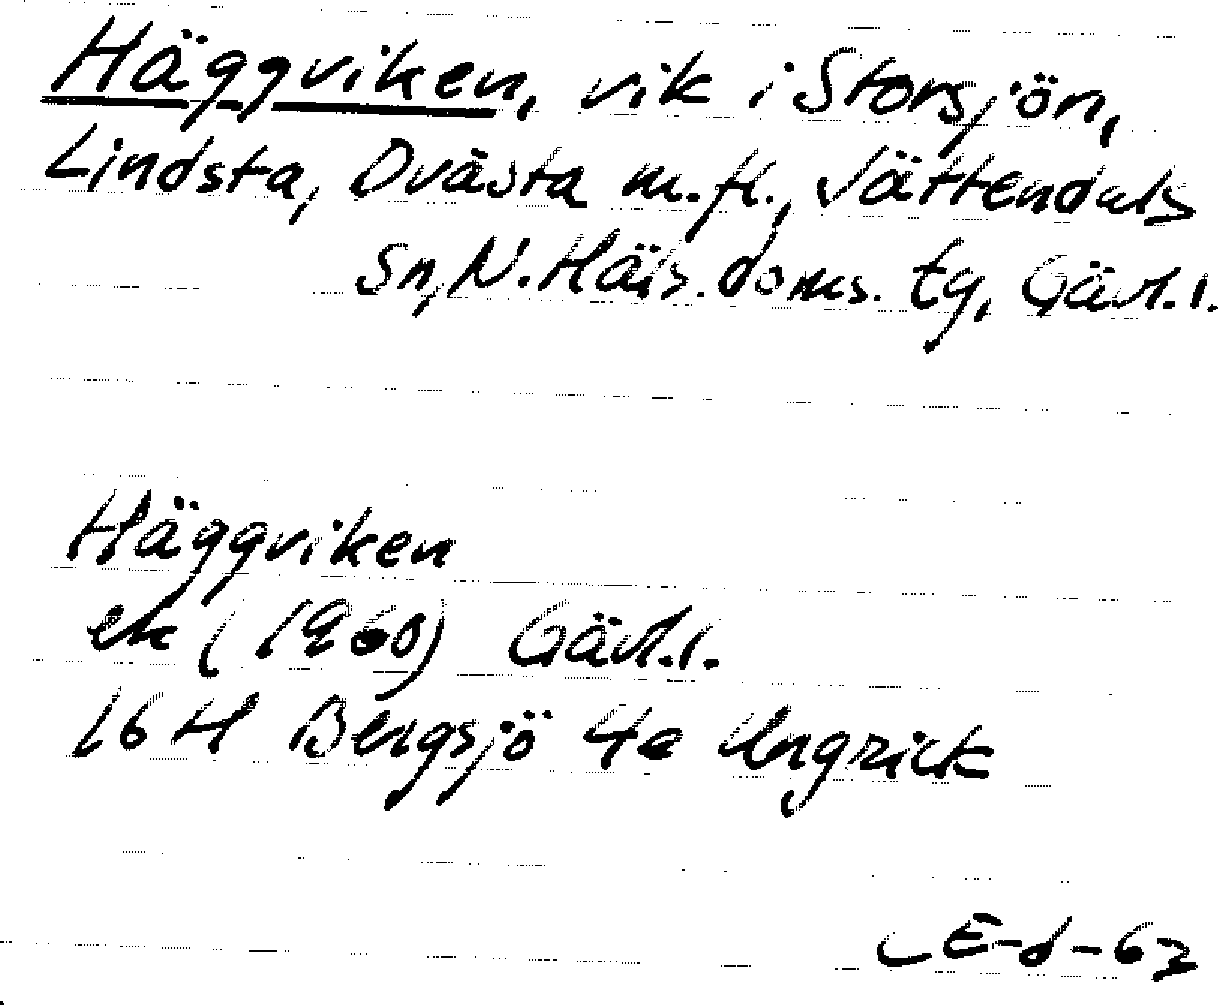 Häggviken, vik i Storsjön,
Lindsta, Dvästa m.fl., Jättendals
sn, N. Häls. doms. tg, Gävl.l.
Häggviken
ek (1960) Gävl.l.
16 H Bergsjö 4e Ungrick
E-d-63